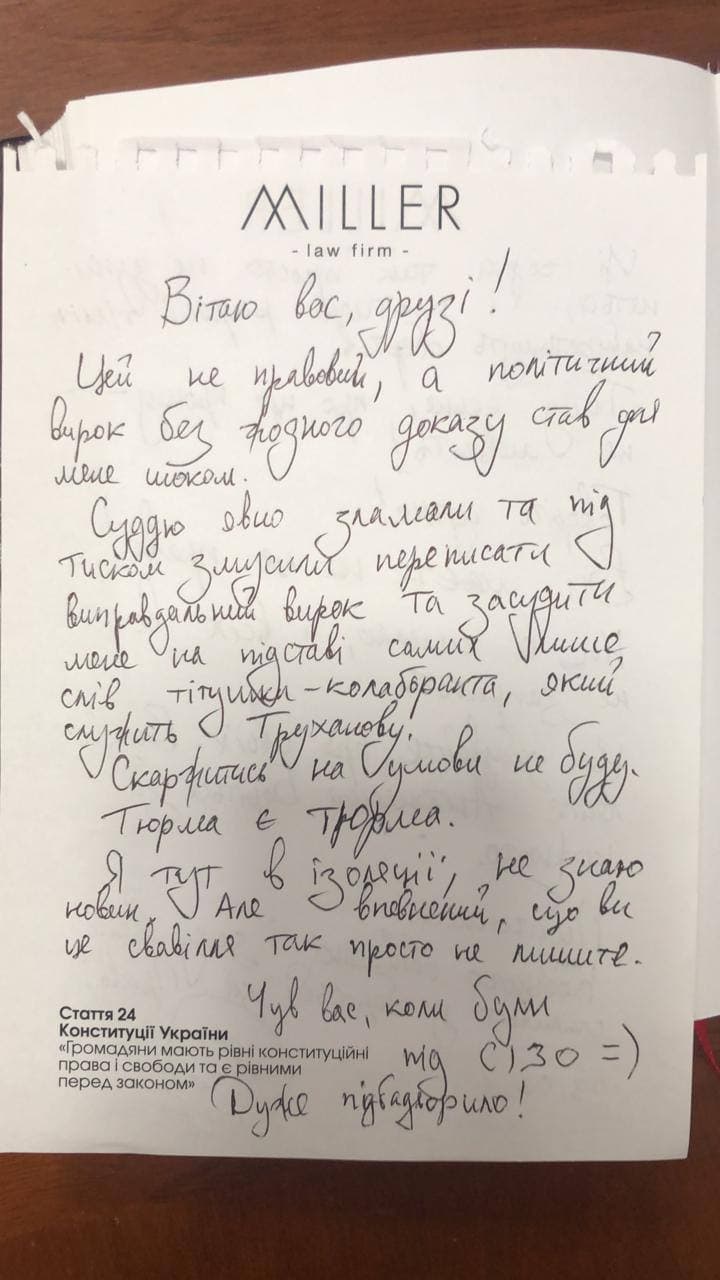 MILLER
- law firm -
Вітаю вас, друзі!
Цей не правовий, а політичний
вирок без жодного доказу став для
мене шоком.
Суддю явно зламали та під
тиском змусили переписати
виправдальний вирок та засудити
мене на підставі самих лише
слів тітушки-колаборанта, який
служить Труханову.
Скаржитись на умови не буду.
Тюрма є тюрма.
Я тут в ізоляції, не знаю
новин. Але впевнений, що ви
це свавілля так просто не лишите.
Чув вас, коли були
під СІЗО =)
Дуже підбадьорило!
Стаття 24
Конституції України
«Громадяни мають рівні конституційні
права і свободи та є рівними
перед законом»